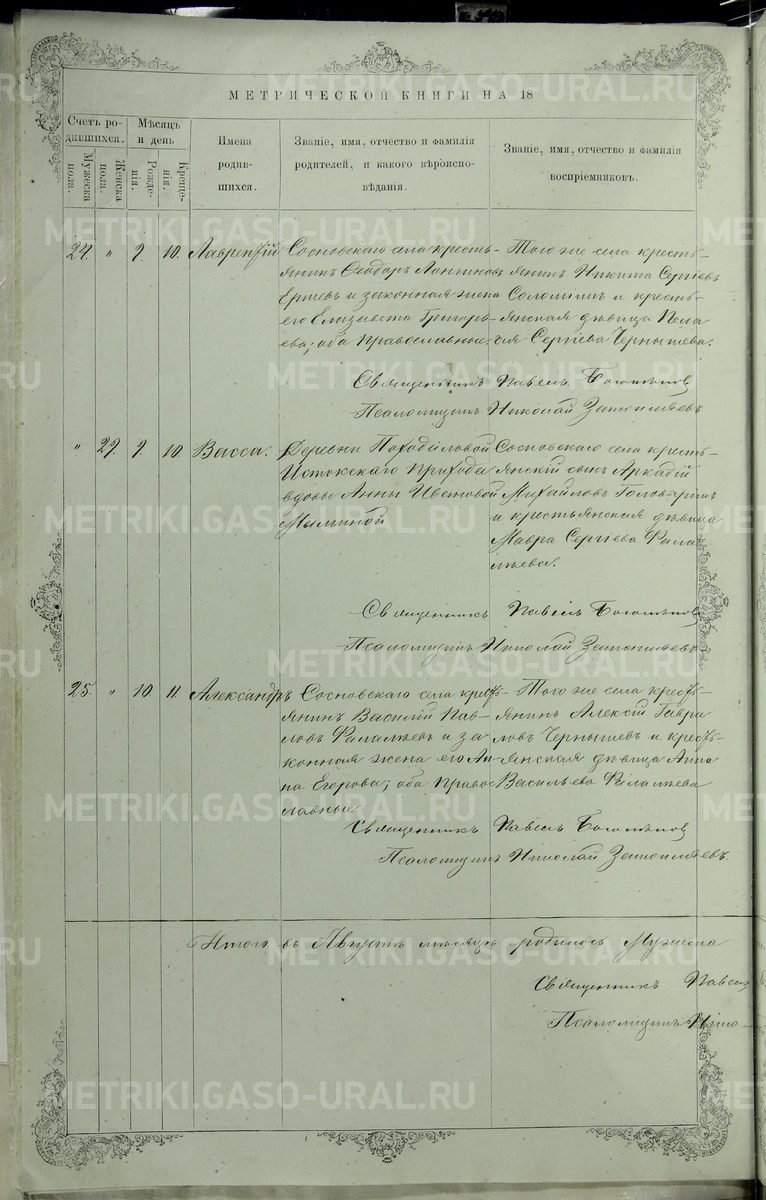 МЕТРИЧЕСКОЙ КНИГИ НА 18
Счетъ родившихся.
Мужеска пола.
Женска пола.
Мѣсяцъ и день
Рожденія.
Крещенія.
Имена родившихся.
Званіе, имя, отчество и фамилія родителей, и какого вѣроисповѣданія.
Званіе, имя, отчество и фамилія воспріемниковъ.
24. " 9. 10. Лаврентій
Сосновскаго села кресть-
янинъ Ѳеодоръ Лонгиновъ
и законная жена
его Елизавета Григорь-
ева; оба православные.
Того же села кресть-
янинъ Никита Сергіевъ
и кресть-
янская дѣвица Пела-
гія Сергіева Чернышева.
Священникъ Павелъ Боголѣпов
Псаломщикъ Николай
" 29. 9. 10. Васса.
Деревни
Истокскаго прихода
вдовы Анны Ивановой
Сосновскаго села кресть-
янскій сынъ Аркадій
Михайловъ
и крестьянская дѣвица
Мавра Сергіева Фала-
лѣева.
Священникъ Павелъ Боголѣпов
Псаломщикъ Николай
25. " 10. 11. Александръ
Сосновскаго села кресть-
янинъ Василій Пав-
ловъ Фалалѣевъ и за-
конная жена его Ан-
на Егорова; оба право-
славные
Того же села кресть-
янинъ Алексій Гаври-
ловъ Чернышевъ и кресть-
янская дѣвица Анна
Васильева Фалалѣева
Священникъ Павелъ Боголѣпов
Псаломщикъ Николай
Итого въ Августѣ мѣсяцѣ родилось Мужеска
Священникъ Павелъ
Псаломщикъ Нико-
METRIKI.GASO-URAL.RU